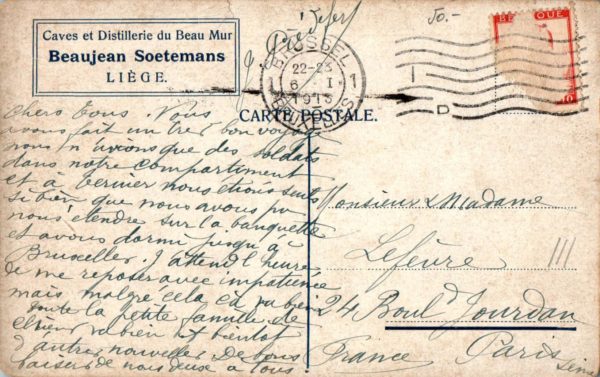 Caves et Distillerie du Beau Mur
Beaujean Soetemans
LIÈGE.
50.-
BRUSSEL
22-23
1 6 I 1
1913
BRUXELLES
D
BE QUE
10
CARTE POSTALE.
Chers tous. Nous
avons fait un très bon voyage
nous n'avions que des soldats
dans notre compartiment
et à Vervier nous étions seuls
si bien que nous avons pu
nous étendre sur la banquette
et avons dormi jusqu'à
Bruxelles. J'attend l'heure
de me reposer avec impatience
mais malgré cela ça va bien
toute la petite famille de
va bien et bientôt
d'autres nouvelles De bons
baisers de nous deux à tous.
Monsieur & Madame
Lefèvre
24 Boul'd Jourdan
Paris
France